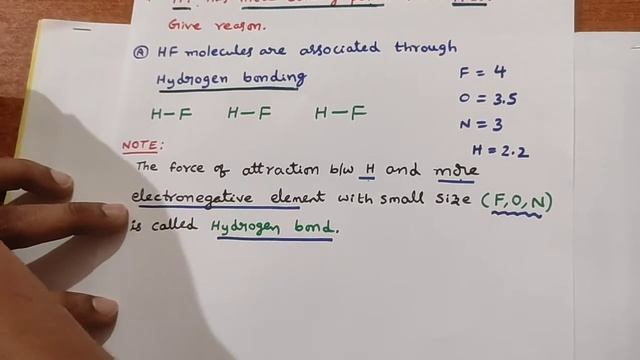 Give reason.
Ⓐ HF molecules are associated through
Hydrogen bonding
H-F H-F H-F
F = 4
O = 3.5
N = 3
H = 2.2
NOTE:
The force of attraction b/w H and more
electronegative element with small size (F,O,N)
is called Hydrogen bond.